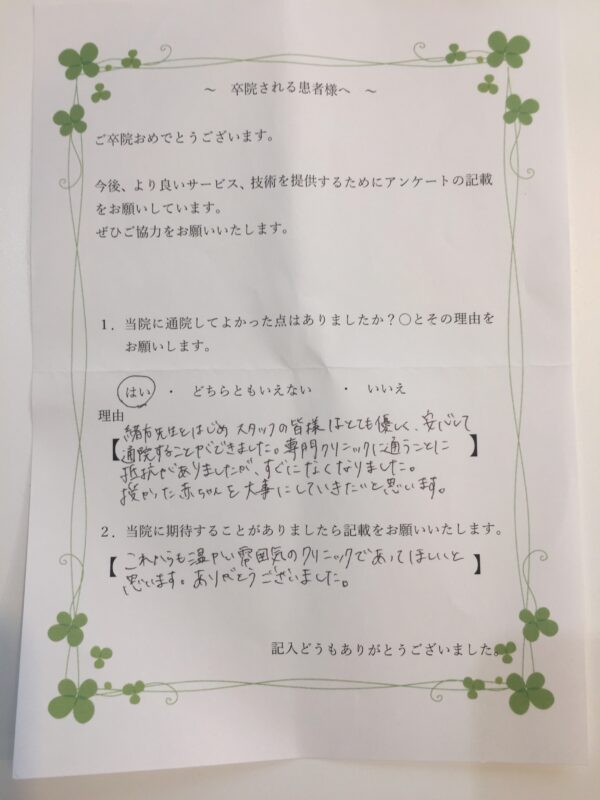 ～ 卒院される患者様へ ～
ご卒院おめでとうございます。
今後、より良いサービス、技術を提供するためにアンケートの記載
をお願いしています。
ぜひご協力をお願いいたします。
１．当院に通院してよかった点はありましたか？〇とその理由を
お願いします。
はい ・ どちらともいえない ・ いいえ
理由
緒方先生をはじめ スタッフの皆様はとても優しく、安心して
【通院することができました。専門クリニックに通うことに】
抵抗がありましたが、すぐになくなりました。
授かった赤ちゃんを大事にしていきたいと思います。
２．当院に期待することがありましたら記載をお願いいたします。
【これからも温かい雰囲気のクリニックであってほしいと】
思います。ありがとうございました。
記入どうもありがとうございました。